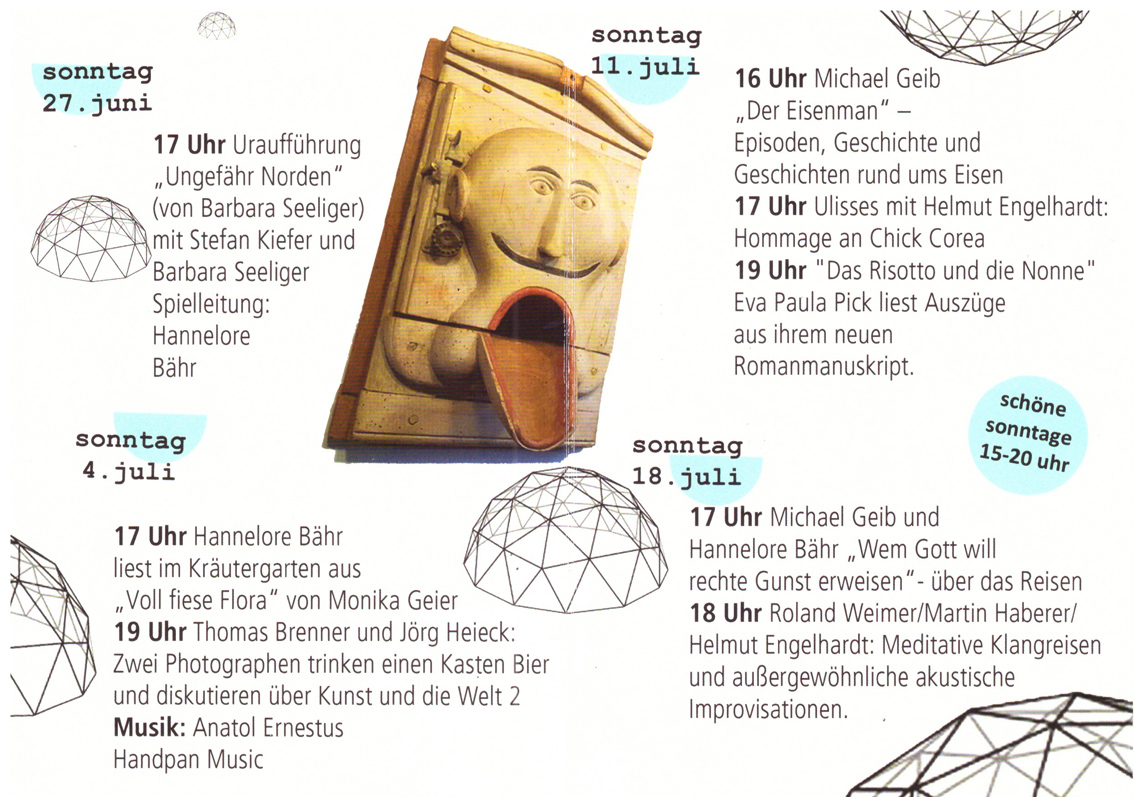 sonntag
27.juni
17 Uhr Uraufführung
„Ungefähr Norden“
(von Barbara Seeliger)
mit Stefan Kiefer und
Barbara Seeliger
Spielleitung:
Hannelore
Bähr
sonntag
4.juli
17 Uhr Hannelore Bähr
liest im Kräutergarten aus
„Voll fiese Flora“ von Monika Geier
19 Uhr Thomas Brenner und Jörg Heieck:
Zwei Photographen trinken einen Kasten Bier
und diskutieren über Kunst und die Welt 2
Musik: Anatol Ernestus
Handpan Music
sonntag
11.juli
16 Uhr Michael Geib
„Der Eisenman“ –
Episoden, Geschichte und
Geschichten rund ums Eisen
17 Uhr Ulisses mit Helmut Engelhardt:
Hommage an Chick Corea
19 Uhr "Das Risotto und die Nonne"
Eva Paula Pick liest Auszüge
aus ihrem neuen
Romanmanuskript.
schöne
sonntage
15-20 uhr
sonntag
18.juli
17 Uhr Michael Geib und
Hannelore Bähr „Wem Gott will
rechte Gunst erweisen“- über das Reisen
18 Uhr Roland Weimer/Martin Haberer/
Helmut Engelhardt: Meditative Klangreisen
und außergewöhnliche akustische
Improvisationen.